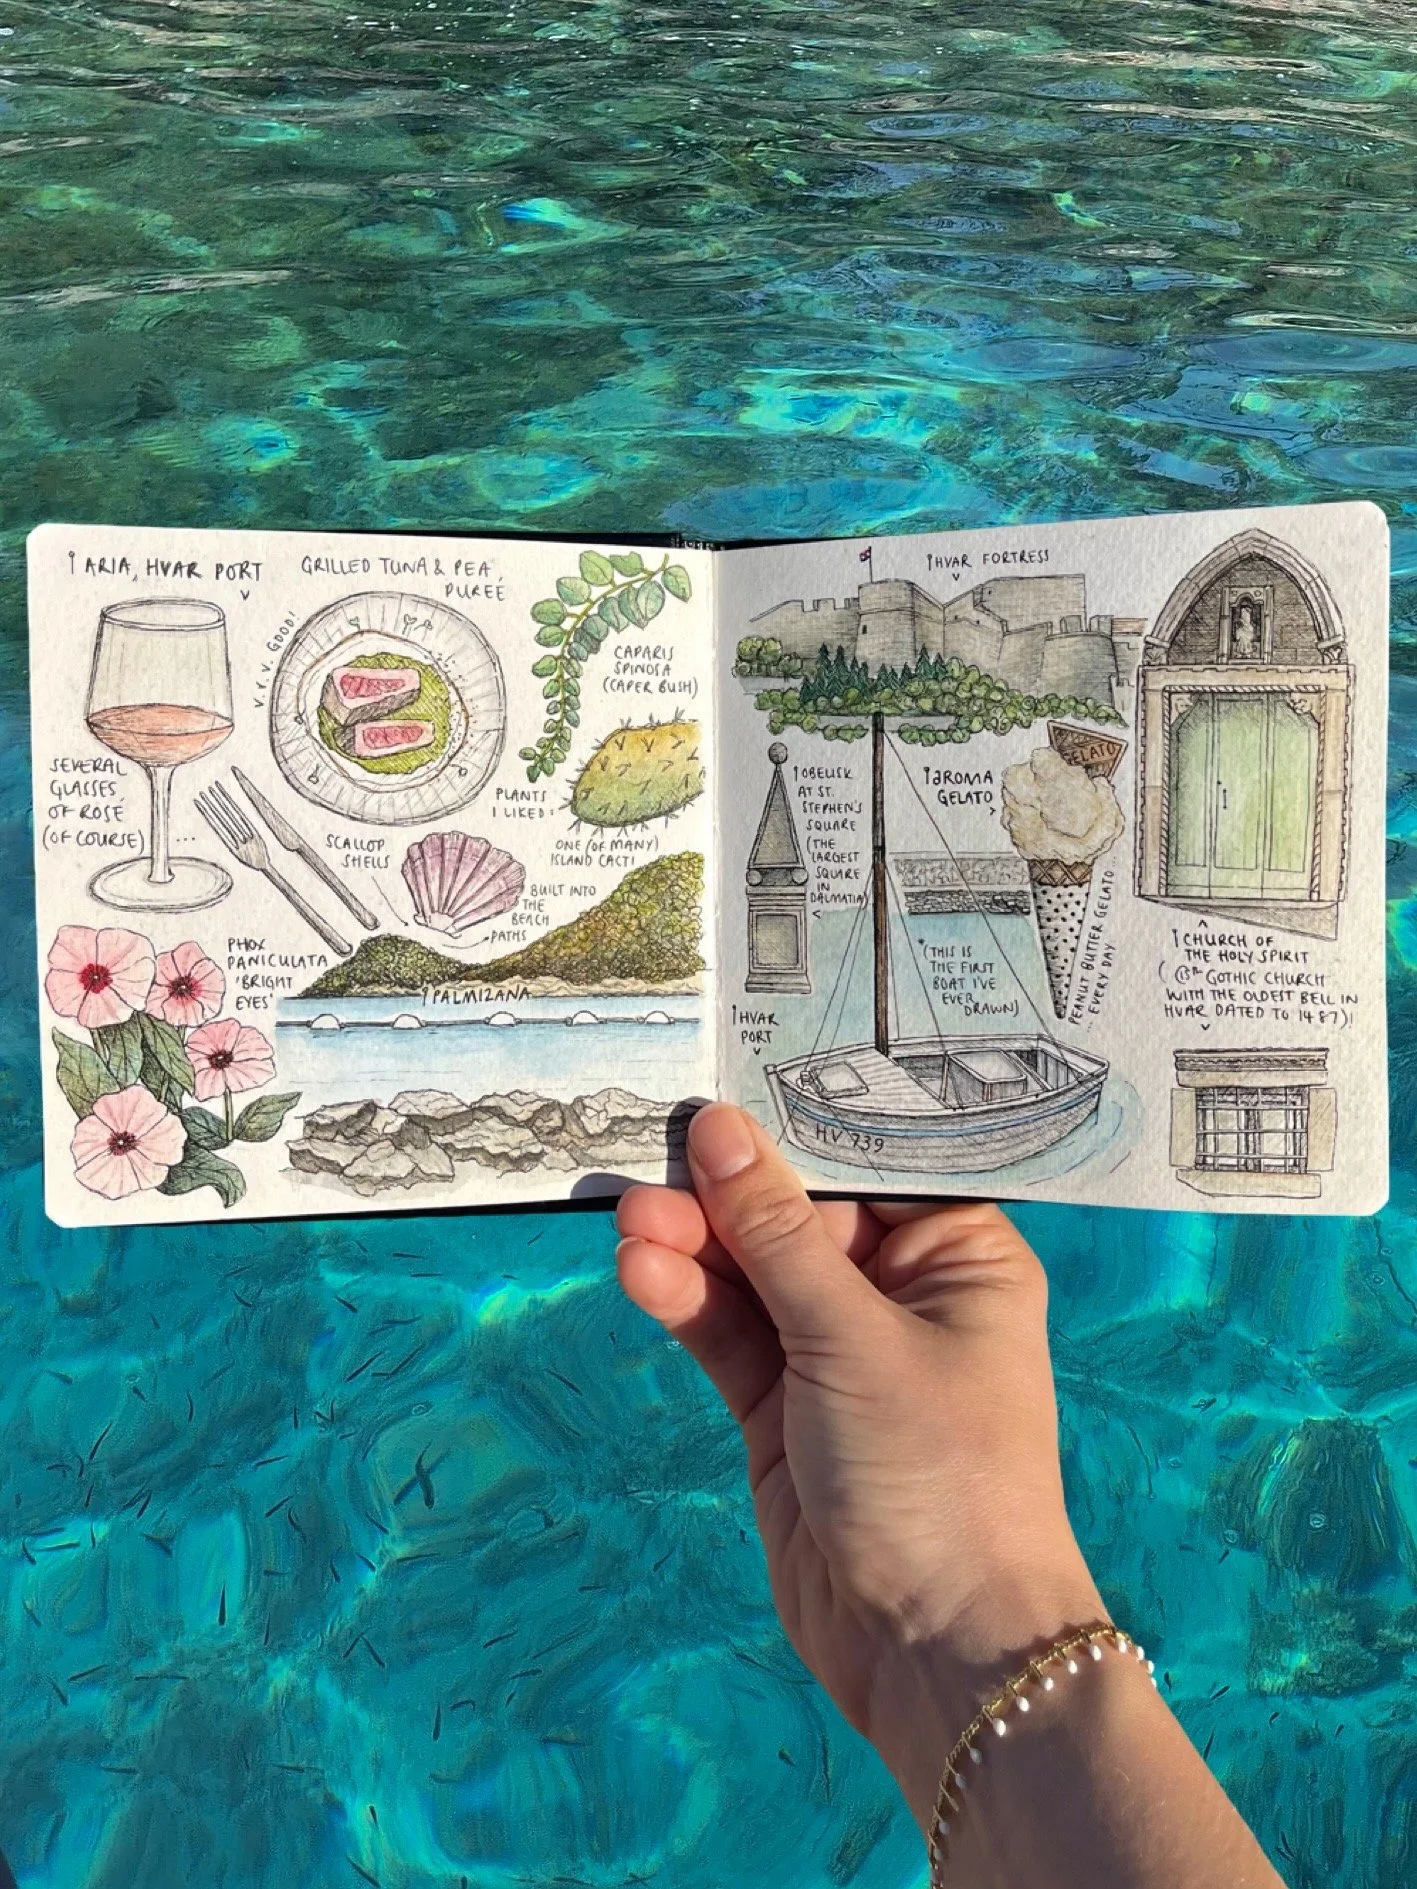 ARIA, HVAR PORT
GRILLED TUNA & PEA
PUREE
V. V. V. GOOD!
CAPARIS
SPINOSA
(CAPER BUSH)
SEVERAL
GLASSES
OF ROSÉ
(OF COURSE)
...
PLANTS
I LIKED:
ONE (OF MANY)
ISLAND CACTI
SCALLOP
SHELLS
BUILT INTO
THE
BEACH
PATHS
PHOX
PANICULATA
'BRIGHT
EYES'
PALMIZANA
HVAR FORTRESS
OBELISK
AT ST.
STEPHEN'S
SQUARE
(THE
LARGEST
SQUARE
IN
DALMATIA)
AROMA
GELATO
GELATO
PEANUT BUTTER GELATO...
... EVERY DAY
*(THIS IS
THE FIRST
BOAT I'VE
EVER
DRAWN)
HVAR
PORT
HV 739
CHURCH OF
THE HOLY SPIRIT
GOTHIC CHURCH
WITH THE OLDEST BELL IN
HVAR DATED TO 1487)!